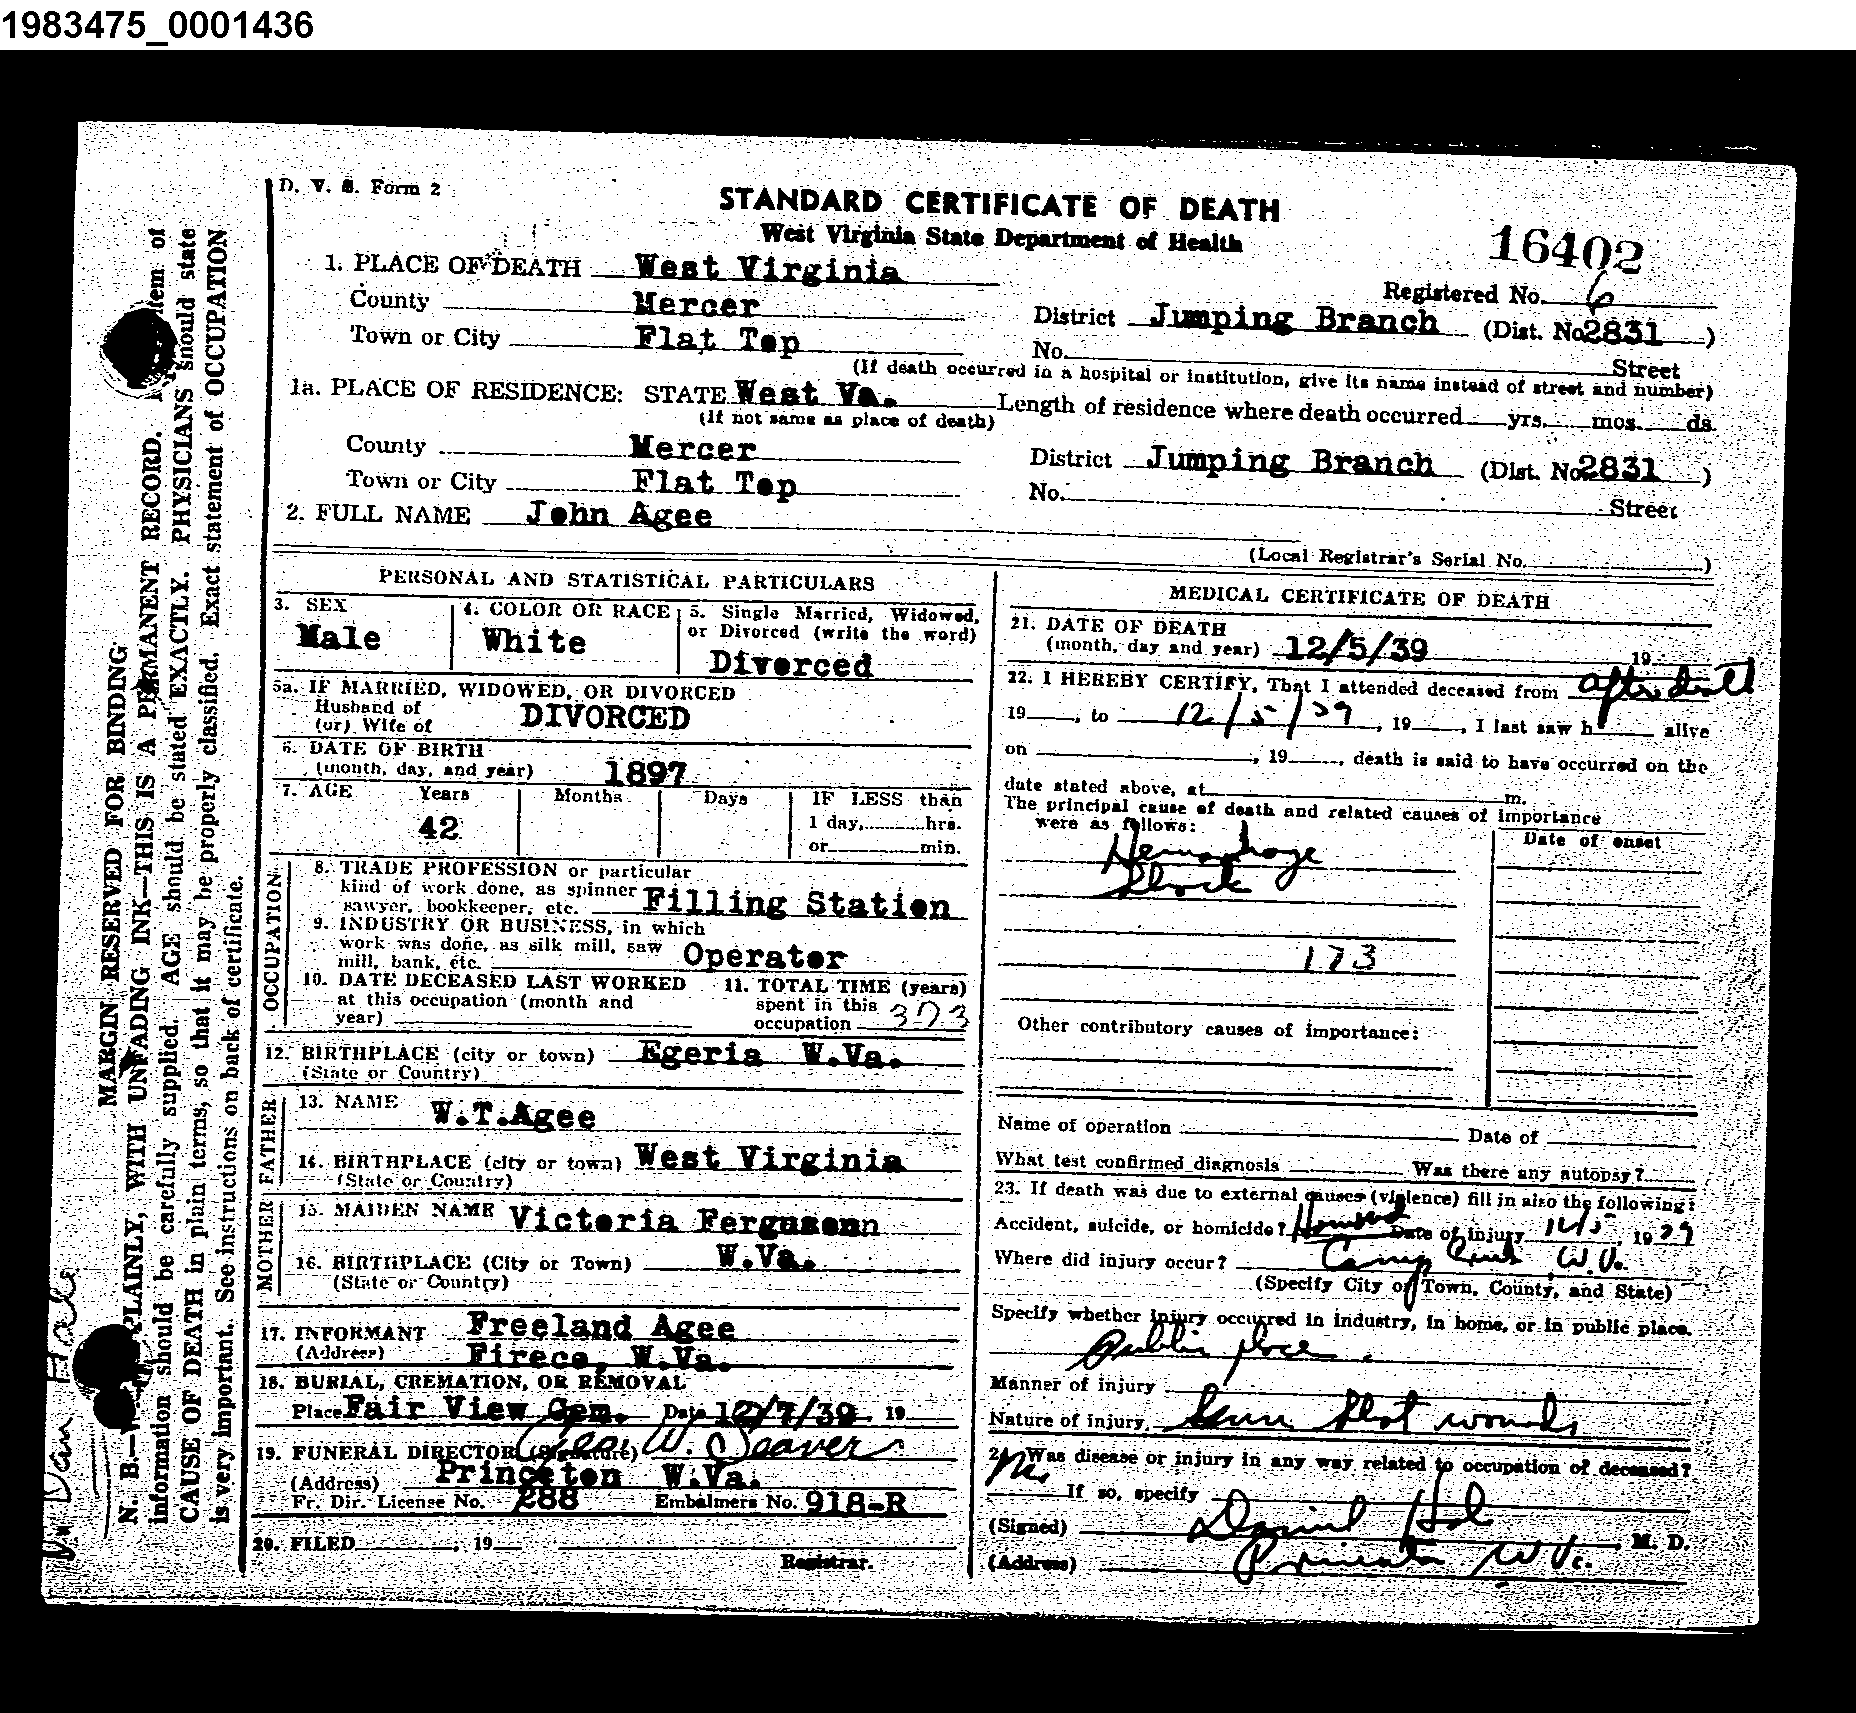 1983475_0001436
D. V. S. Form 2
STANDARD CERTIFICATE OF DEATH
West Virginia State Department of Health
16402
1. PLACE OF DEATH West Virginia
Registered No. 6
County Mercer
District Jumping Branch (Dist. No. 2831)
Town or City Flat Top
No. Street
(If death occurred in a hospital or institution, give its name instead of street and number)
1a. PLACE OF RESIDENCE: STATE West Va.
(If not same as place of death)
Length of residence where death occurred yrs. mos. ds.
County Mercer
District Jumping Branch (Dist. No. 2831)
Town or City Flat Top
No. Street
2. FULL NAME John Agee
(Local Registrar's Serial No. )
PERSONAL AND STATISTICAL PARTICULARS
3. SEX
Male
4. COLOR OR RACE
White
5. Single Married, Widowed,
or Divorced (write the word)
Divorced
5a. IF MARRIED, WIDOWED, OR DIVORCED
Husband of
(or) Wife of DIVORCED
6. DATE OF BIRTH
(month, day, and year) 1897
7. AGE Years Months Days IF LESS than
42
1 day, hrs.
or min.
OCCUPATION
8. TRADE PROFESSION or particular
kind of work done, as spinner
sawyer, bookkeeper, etc. Filling Station
9. INDUSTRY OR BUSINESS, in which
work was done, as silk mill, saw
mill, bank, etc. Operator
10. DATE DECEASED LAST WORKED
at this occupation (month and
year)
11. TOTAL TIME (years)
spent in this
occupation 373
12. BIRTHPLACE (city or town) Egeria W.Va.
(State or Country)
FATHER
13. NAME W.T.Agee
14. BIRTHPLACE (city or town) West Virginia
(State or Country)
MOTHER
15. MAIDEN NAME Victoria Fergusonn
16. BIRTHPLACE (City or Town) W.Va.
(State or Country)
17. INFORMANT Freeland Agee
(Address) Fireco, W.Va.
18. BURIAL, CREMATION, OR REMOVAL
Place Fair View Cem. Date 12/7/39 19
19. FUNERAL DIRECTOR (Signature) W. Seaver
(Address) Princeton W.Va.
Fr. Dir. License No. 288 Embalmers No. 918-R
20. FILED , 19
Registrar.
MEDICAL CERTIFICATE OF DEATH
21. DATE OF DEATH
(month, day and year) 12/5/39 19
22. I HEREBY CERTIFY, That I attended deceased from after death
19 , to 12/5/39, 19 , I last saw h alive
on , 19 , death is said to have occurred on the
date stated above, at m.
The principal cause of death and related causes of importance
were as follows:
Date of onset
Hemorrhage
Shock
173
Other contributory causes of importance:
Name of operation Date of
What test confirmed diagnosis Was there any autopsy?
23. If death was due to external causes (violence) fill in also the following:
Accident, suicide, or homicide? Homicide Date of injury 12/5 1939
Where did injury occur? Camp Creek W.V.
(Specify City or Town, County, and State)
Specify whether injury occurred in industry, in home, or in public place.
Public place.
Manner of injury
Nature of injury Gun Shot wounds
24. Was disease or injury in any way related to occupation of deceased?
No.
If so, specify
(Signed) Daniel Hale M. D.
(Address) Princeton W Va.
MARGIN RESERVED FOR BINDING
N. B.—W PLAINLY, WITH UNFADING INK—THIS IS A PERMANENT RECORD. item of
information should be carefully supplied. AGE should be stated EXACTLY. PHYSICIANS should state
CAUSE OF DEATH in plain terms, so that it may be properly classified. Exact statement of OCCUPATION
is very important. See instructions on back of certificate.
Dr Dan Hale